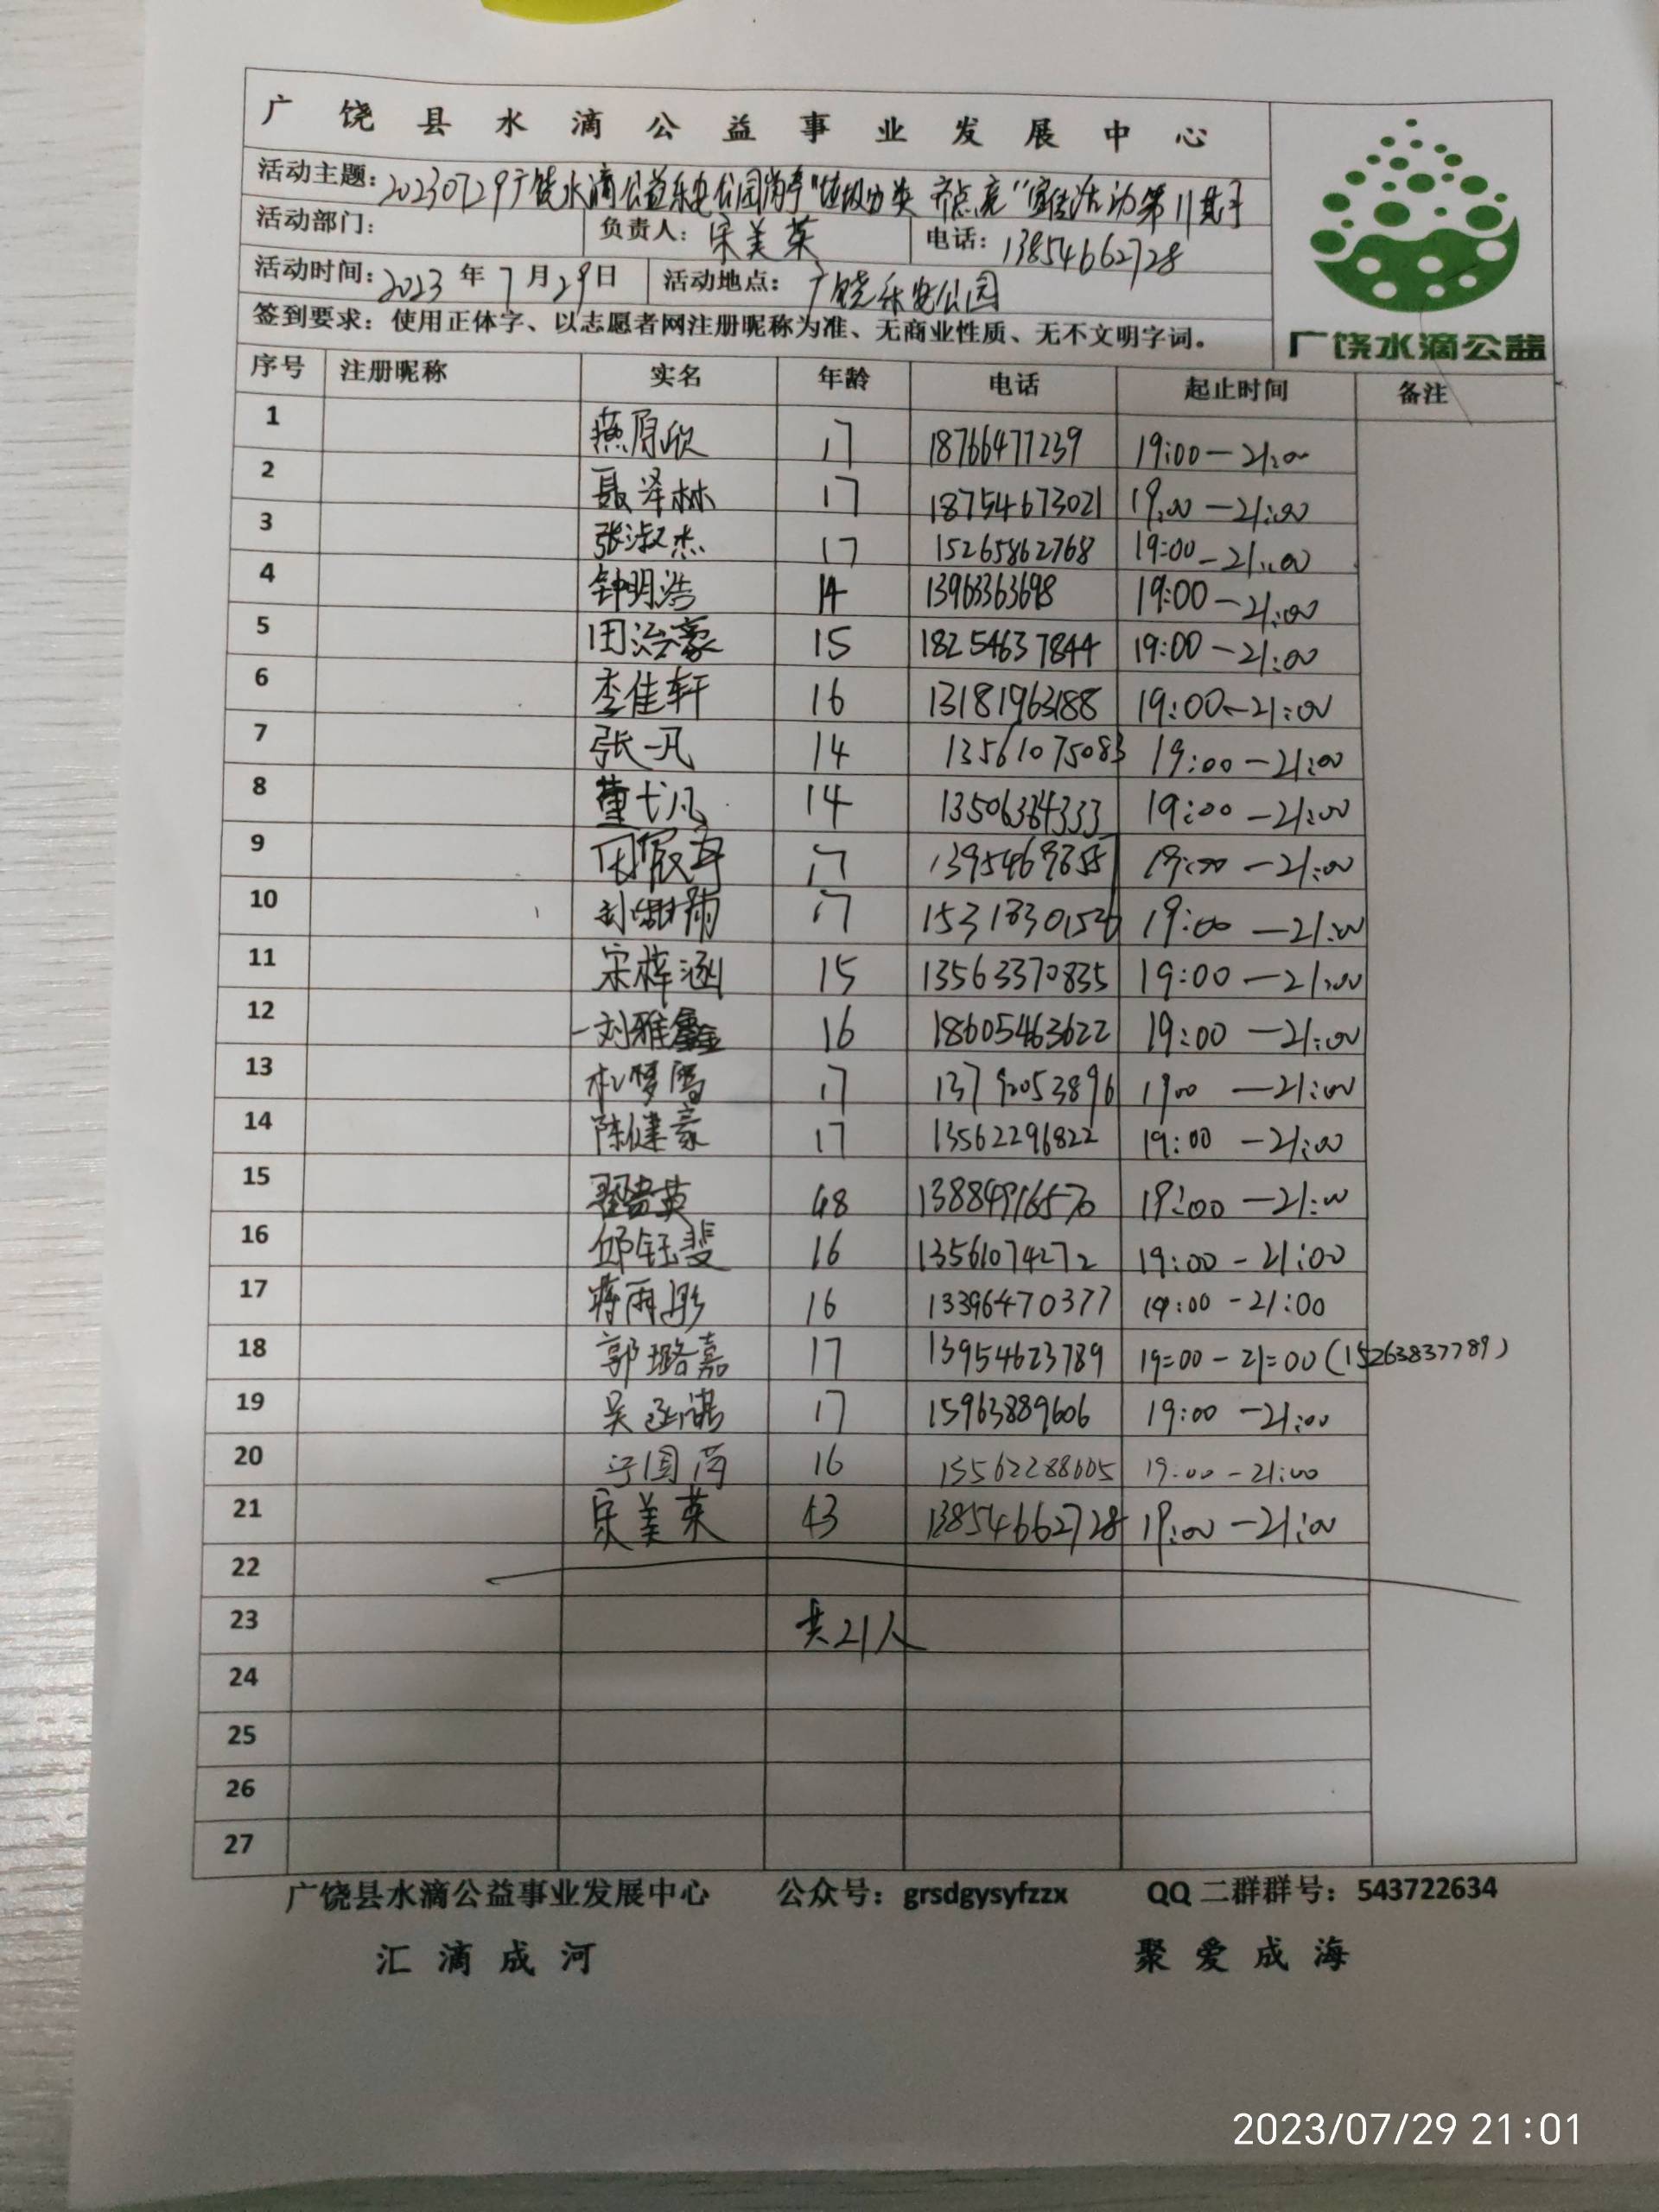 广饶县水滴公益事业发展中心
活动主题：20230729广饶水滴公益乐安公园岗亭"垃圾分类 齐点亮"宣传活动第11其于
活动部门： 负责人：宋美英 电话：13854662728
活动时间：2023年7月29日 活动地点：广饶乐安公园
签到要求：使用正体字、以志愿者网注册昵称为准、无商业性质、无不文明字词。
广饶水滴公益
序号 注册昵称 实名 年龄 电话 起止时间 备注
1 燕原欣 17 18766477239 19:00-21:00
2 聂泽林 17 18754673021 19:00-21:00
3 张淑杰 17 15265862768 19:00-21:00
4 钟明浩 14 13963363698 19:00-21:00
5 田治豪 15 18254637844 19:00-21:00
6 李佳轩 16 13181963188 19:00-21:00
7 张一凡 14 13561075083 19:00-21:00
8 董弋凡 14 13506384333 19:00-21:00
9 17 19:00-21:00
10 17 19:00-21:00
11 宋梓涵 15 13563370835 19:00-21:00
12 刘雅鑫 16 18605463622 19:00-21:00
13 17 13792053896 1900-21:00
14 陈健豪 17 13562296822 19:00-21:00
15 48 19:00-21:00
16 邱钰斐 16 13561074272 19:00-21:00
17 蒋雨彤 16 13396470377 19:00-21:00
18 郭璐嘉 17 13954623789 19:00-21:00(15263837789)
19 17 15963889606 19:00-21:00
20 16 13562288605 19:00-21:00
21 宋美英 43 13854662728 19:00-21:00
22
23 共21人
24
25
26
27
广饶县水滴公益事业发展中心 公众号：grsdgysyfzzx QQ二群群号：543722634
汇滴成河 聚爱成海
2023/07/29 21:01